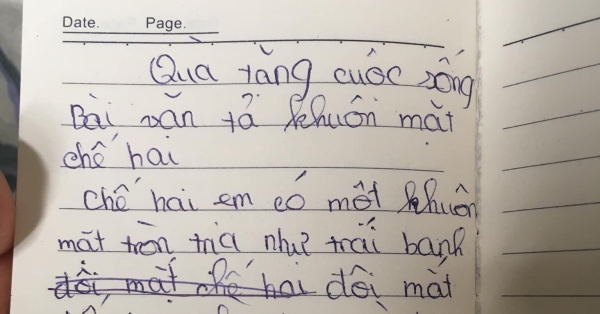 Date. Page.
Quà tặng cuộc sống
Bài văn tả khuôn mặt
chế hai
Chế hai em có một khuôn
mặt tròn trịa như trái banh
đôi mắt chế hai đôi mắt